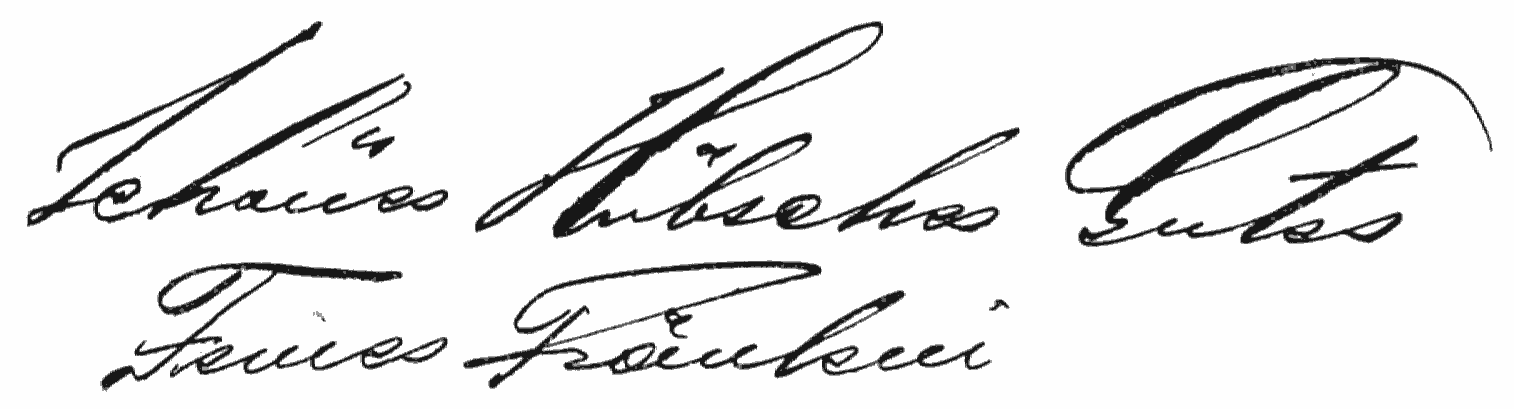 Schönes Hübsches Gutes
Feines Fräulein